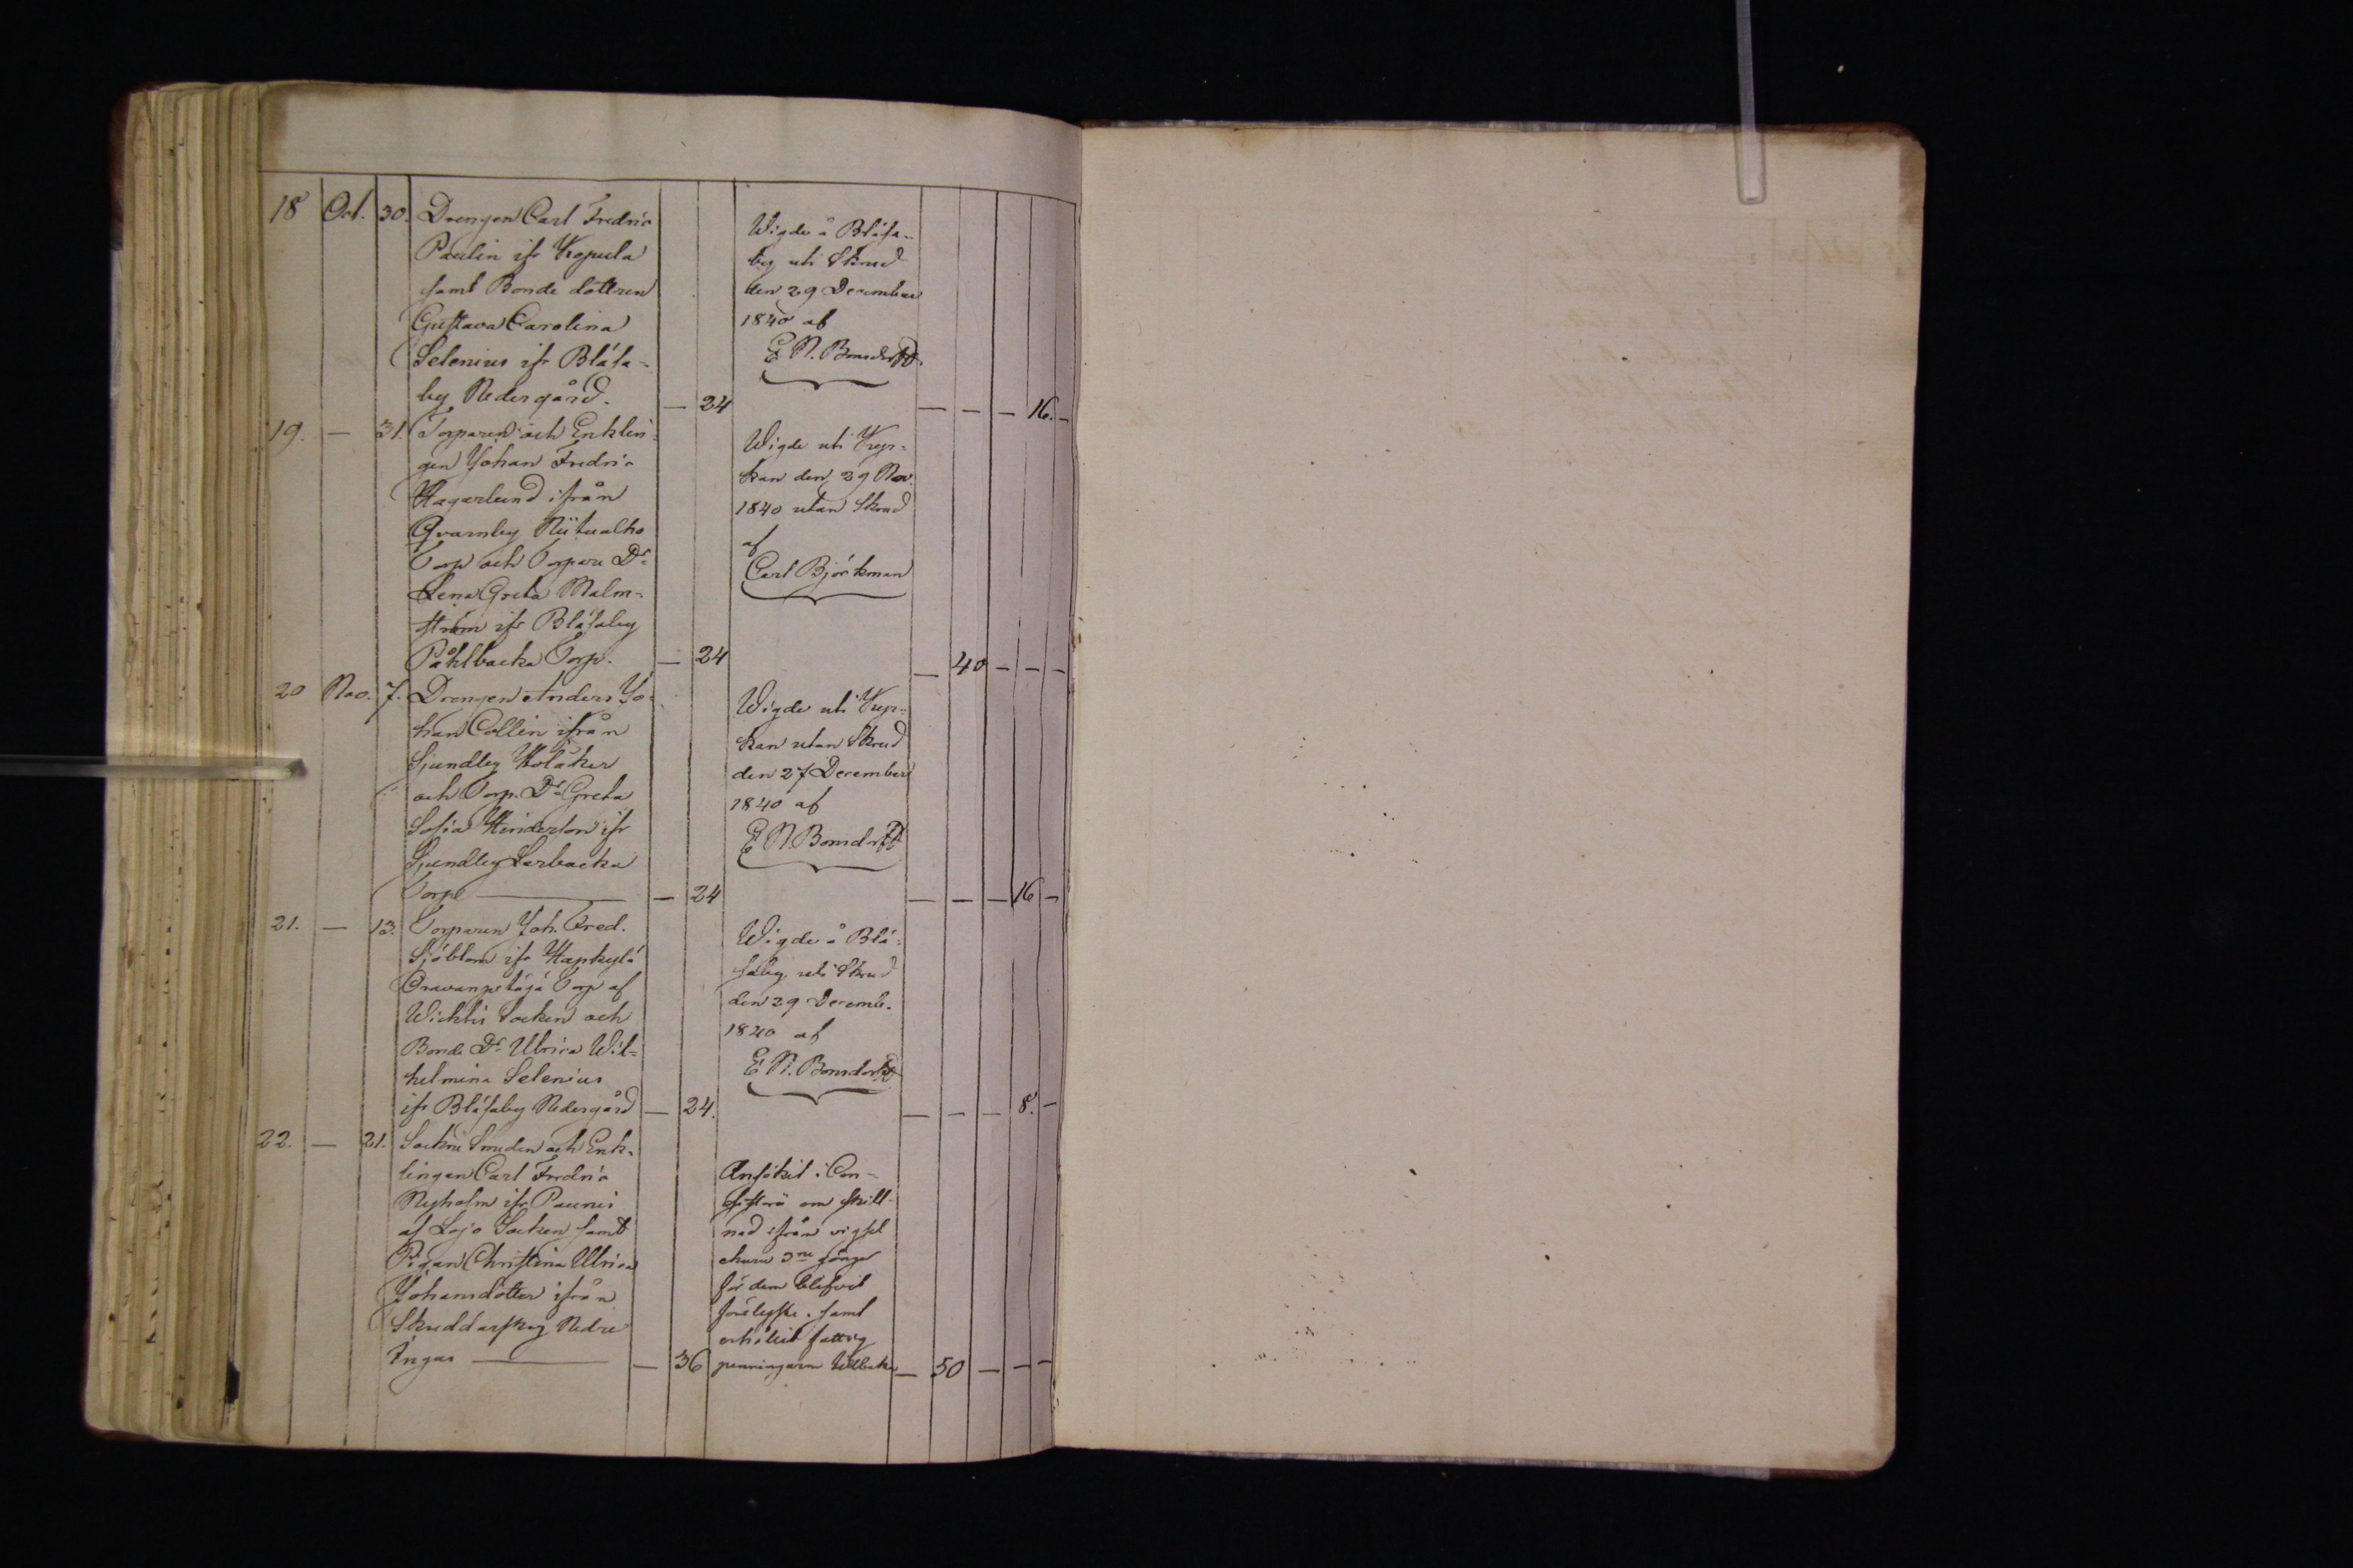 18 Oct. 30. Drengen Carl Fredric
Paulin ifr Kopula
samt Bonde dottren
Gustava Carolina
Selenius ifr Blåsa-
by Nedergård. — 24
Wigde å Blåsa-
by uti Skrud
den 29 December
1840 af
E N. Bonsdorff
— — — 16. —
19. — 31. Torparen och Enklin-
gen Johan Fredric
Hagerlund ifrån
Qvarnby
Torp och Torpare Dr
Lena Greta Malm-
ström ifr Blåsaby
Påhlbacka Torp. — 24
Wigde uti Kyr-
kan den 29 Nov.
1840 utan Skrud
af
Carl Björkman
— 40 — — —
20 Nov. 7. Drengen Anders Jo-
han Collin ifrån
Sjundby
och Torp. Dr Greta
Sofia ifr
Sjundby Lerbacka
Torp — 24
Wigde uti Kyr-
kan utan Skrud
den 27 December
1840 af
E N. Bonsdorff
— — — 16 —
21. — 13. Torparen Joh. Fred.
Sjöblom ifr
Torp af
Wichtis Socken och
Bonde Dr Ulrica Wil-
helmina Selenius
ifr Blåsaby Nedergård — 24.
Wigde å Blå-
saby uti Skrud
den 29 Decemb.
1840 af
E N. Bonsdorff
— — — 8. —
22. — 21. Sockne Smeden och Enk-
lingen Carl Fredric
Nyholm ifr
af Lojo Socken samt
Pigan Christina Ulrica
Johansdotter ifrån
Skuddarskog Nedre
Ingas — 36
Ansökt i Con-
sistorio om skill-
nad ifrån vigsel
ehuru 3ne gånger
för dem blefvit
förelyste. samt
erhållit fattig
penningarne tillbaka — 50 — — —